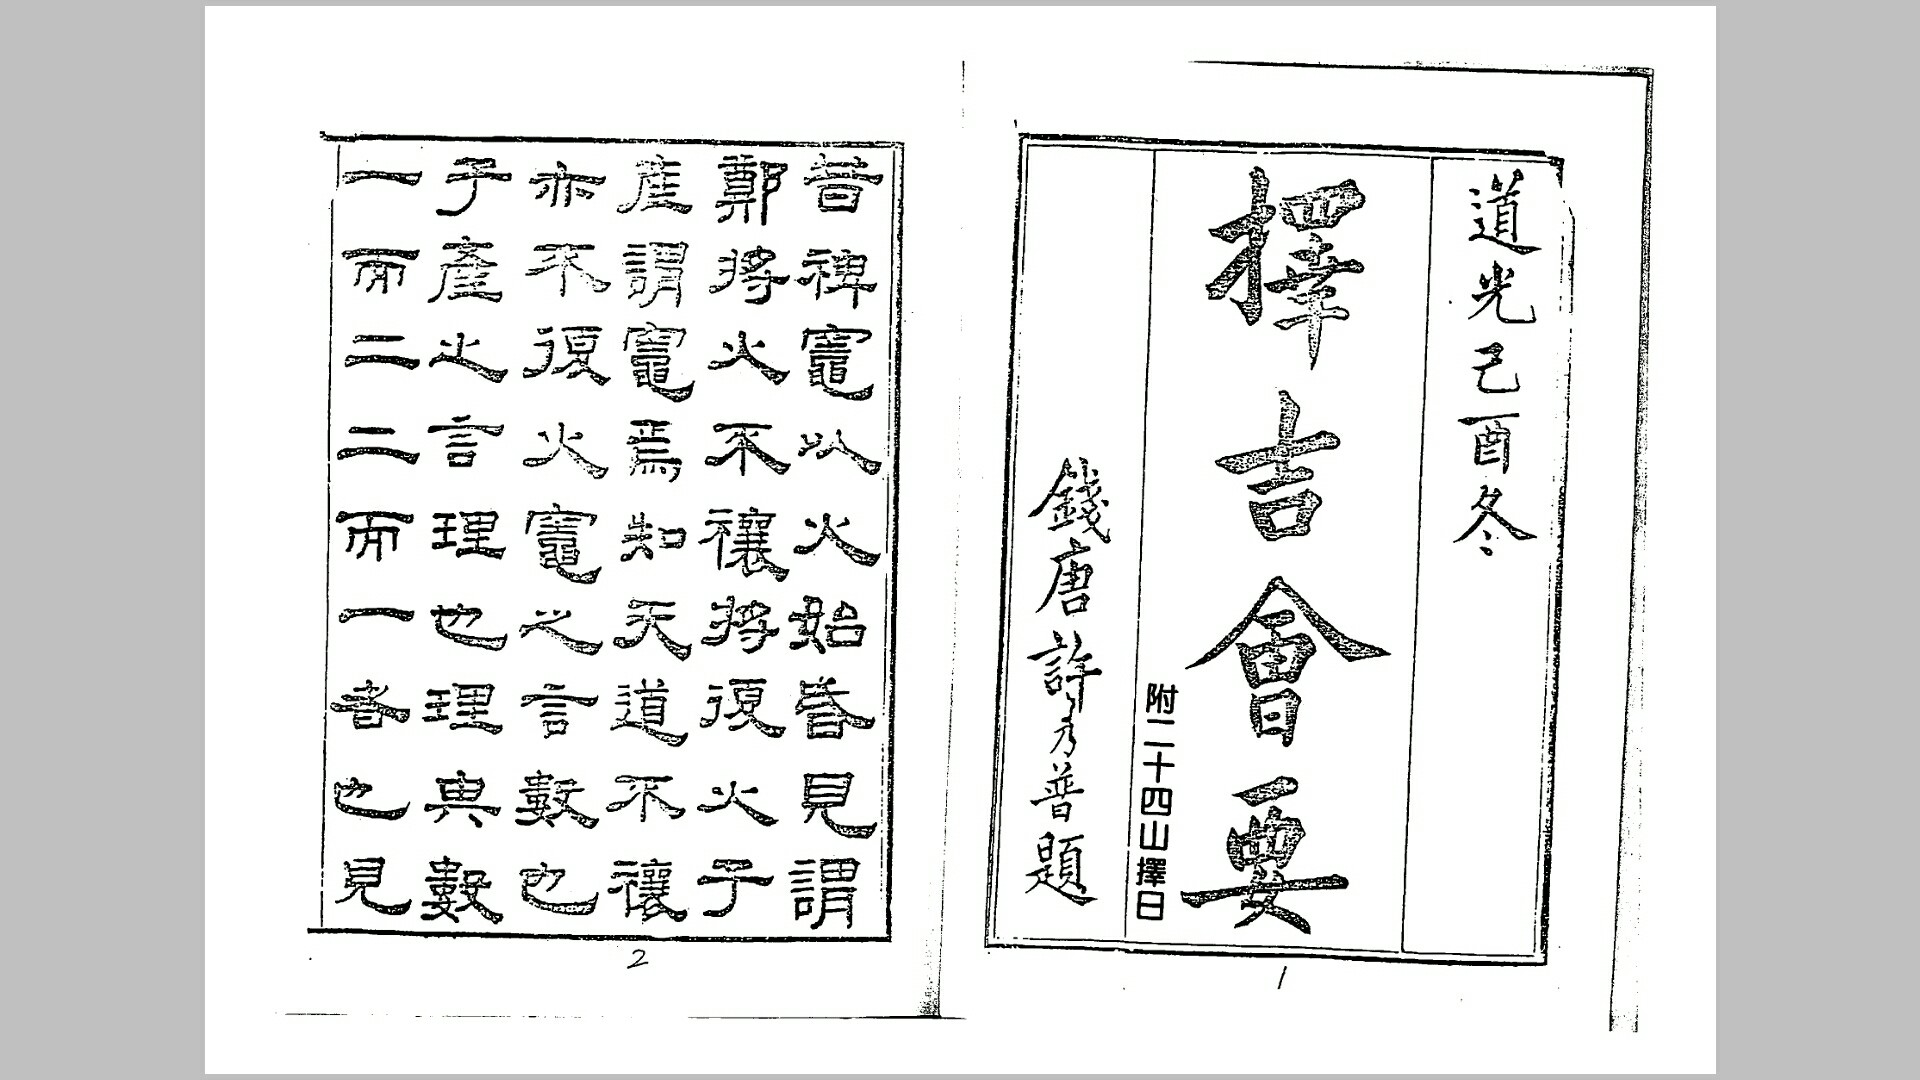 道光己酉冬
擇吉會要
附二十四山擇日
錢唐許乃普題
1
昔裨竈以火始昏見謂
鄭將火不禳將復火子
產謂竈焉知天道不禳
亦不復火竈之言數也
子產之言理也理與數
一而二二而一者也見
2